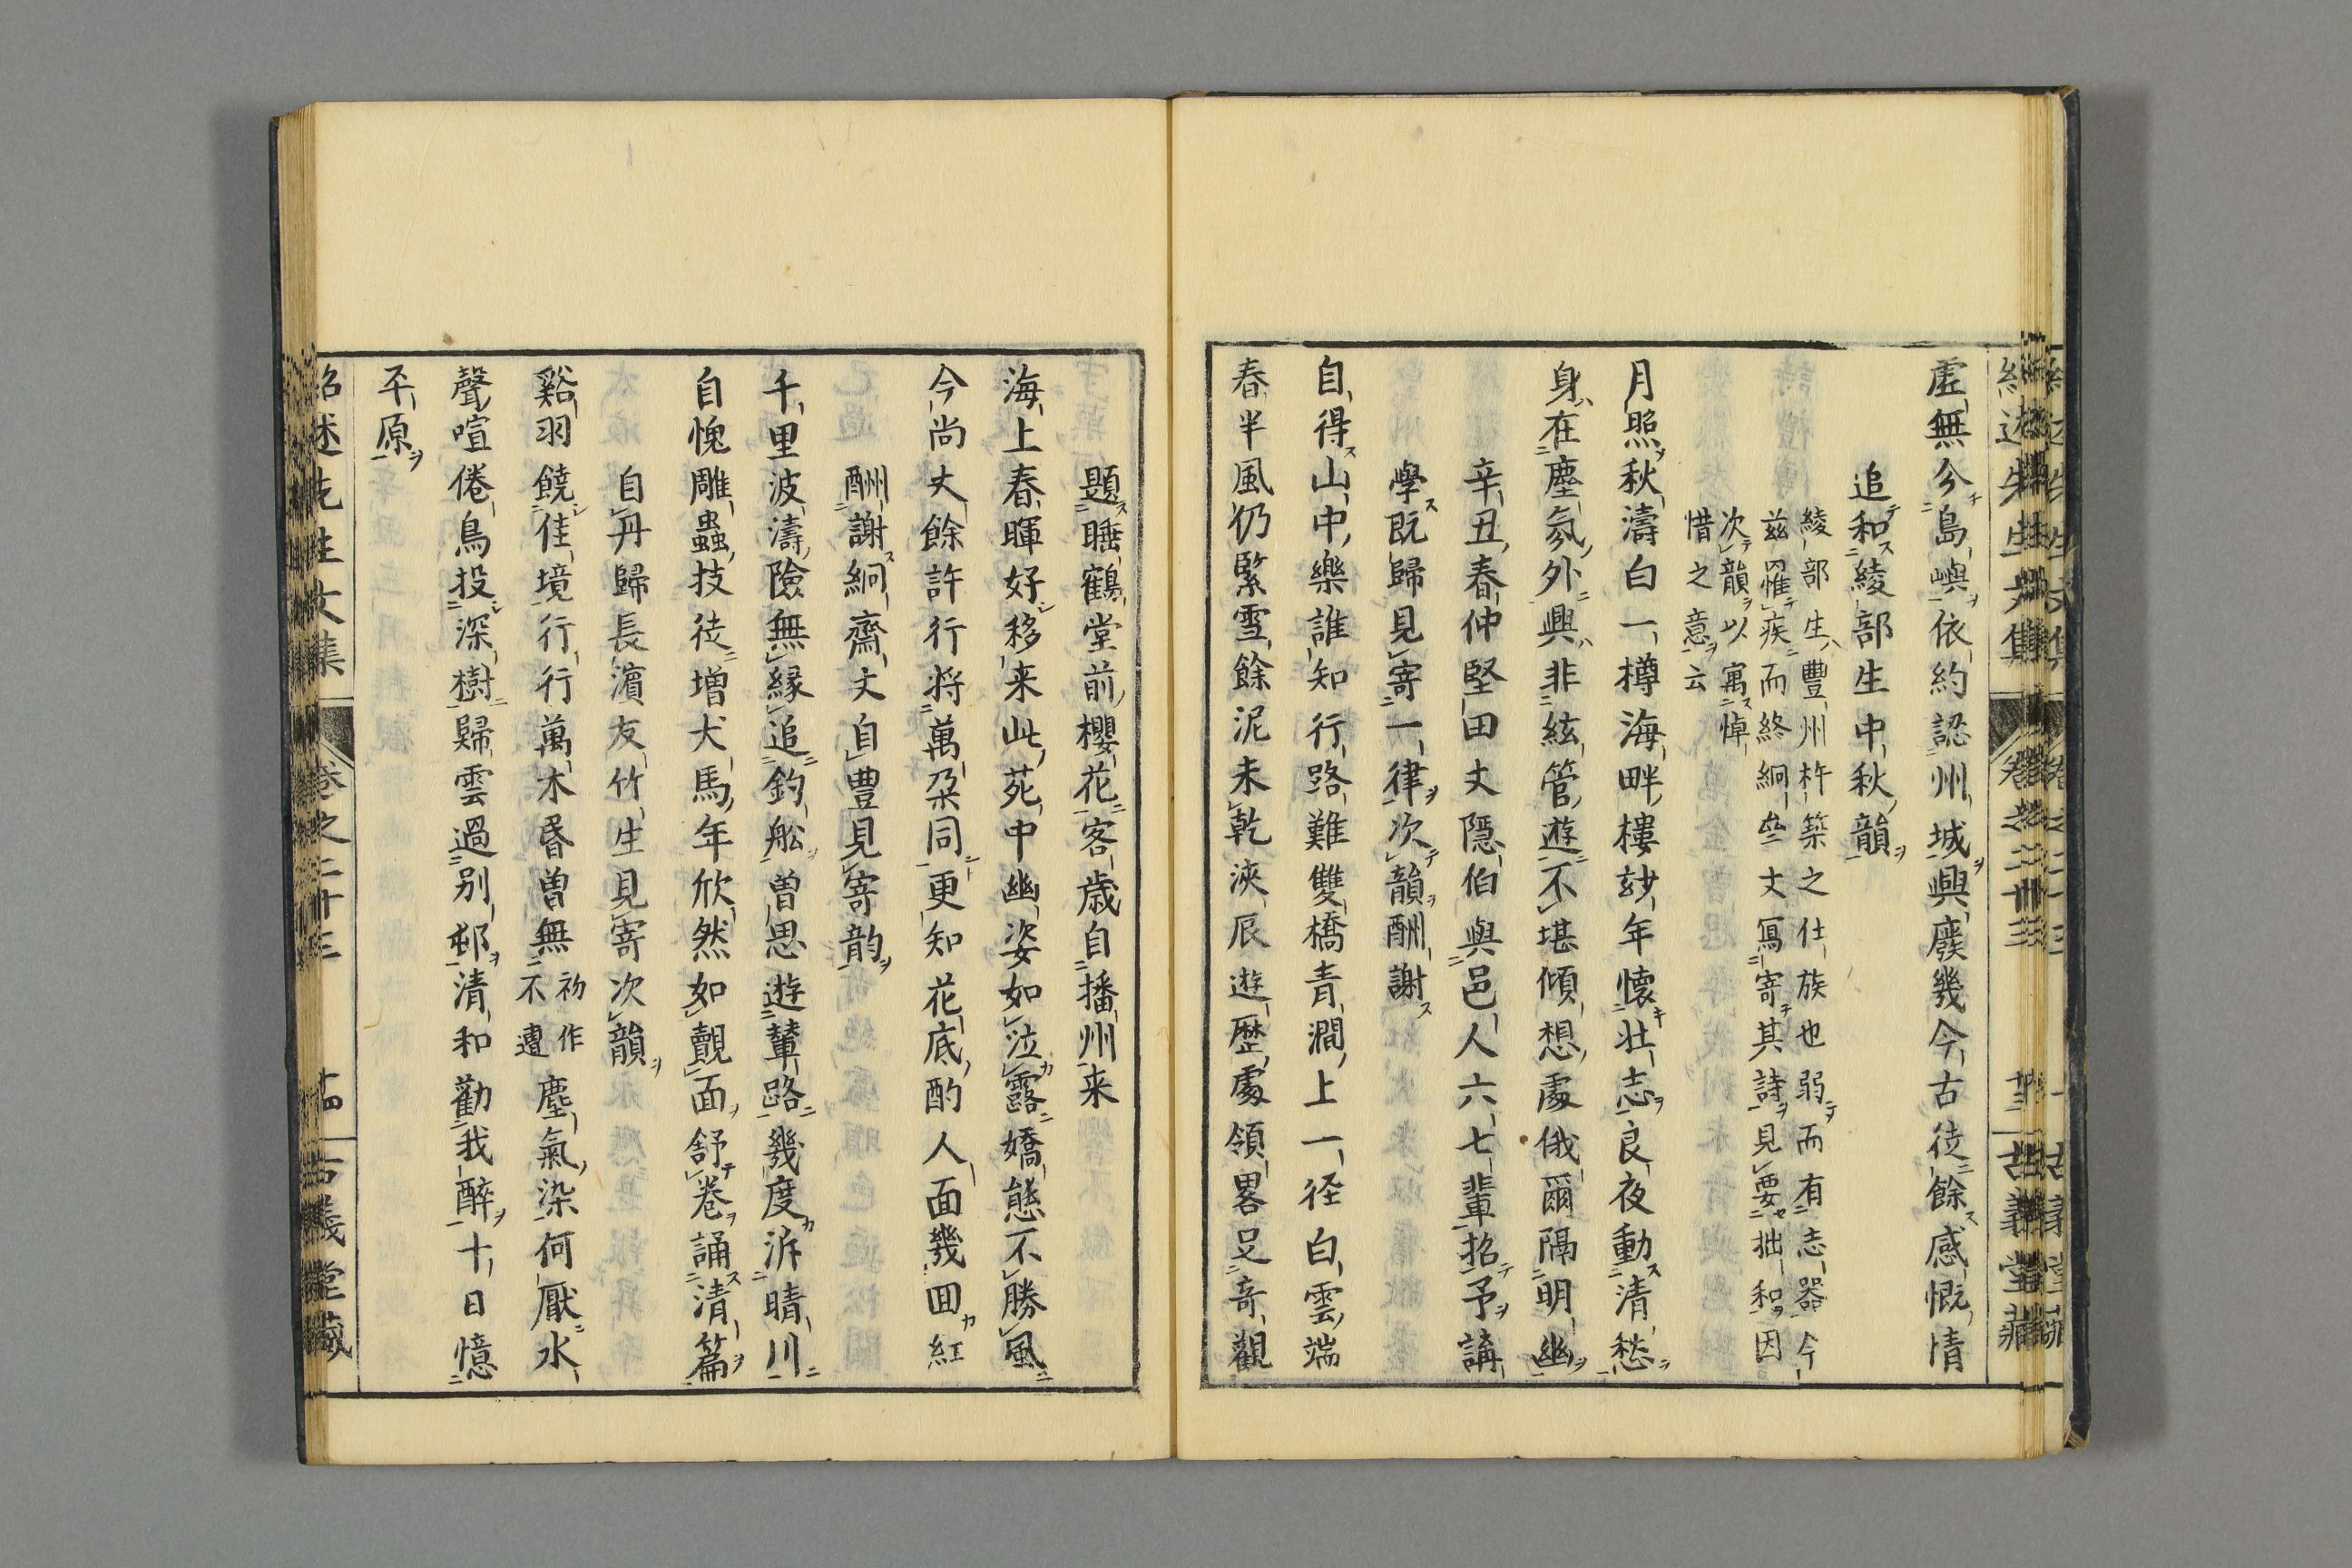 虗無今島嶼依約認州城興廢幾今古徒餘感慨情
追和綾部生中秋韻
綾部生豐州杵築之仕族也弱而有志器今
茲罹疾而終絅齋丈寫寄其詩見要拙和因
次韻以寓悼
惜之意云
月照秋濤白一樽海畔樓玅年懷壯志良夜動清愁
身在塵氛外興非絃管遊不堪傾想處俄爾隔明幽
辛丑春仲堅田丈隱伯與邑人六七輩招予講
學既歸見寄一律次韻酬謝
自得山中樂誰知行路難雙橋青澗上一径白雲端
春半風仍緊雪餘泥未乾浹辰遊歷處領畧足奇觀
題睡鶴堂前櫻花客歳自播州来
海上春暉好移来此苑中幽姿如泣露嬌態不勝風
今尚丈餘許行将萬朶同更知花底酌人面幾囬紅
酬謝絅齋丈自豊見寄韵
千里波濤險無縁追釣舩曽思遊輦路幾度泝晴川
自愧雕蟲技徒増犬馬年欣然如覿面舒巻誦清篇
自丹歸長濵友竹生見寄次韻
谿羽饒佳境行行萬木昏曽無初作不遭塵氣染何厭水
聲喧倦鳥投深樹歸雲過别邨清和勸我醉十日憶
平原
紹述先生文集
卷之二十三
十四
古義堂藏